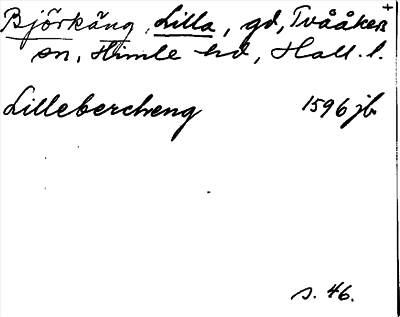 Björkäng, Lilla, gd, Tvååkers
sn, Himle hd, Hall. l.
Lillebercheng 1596 jb
s. 46.